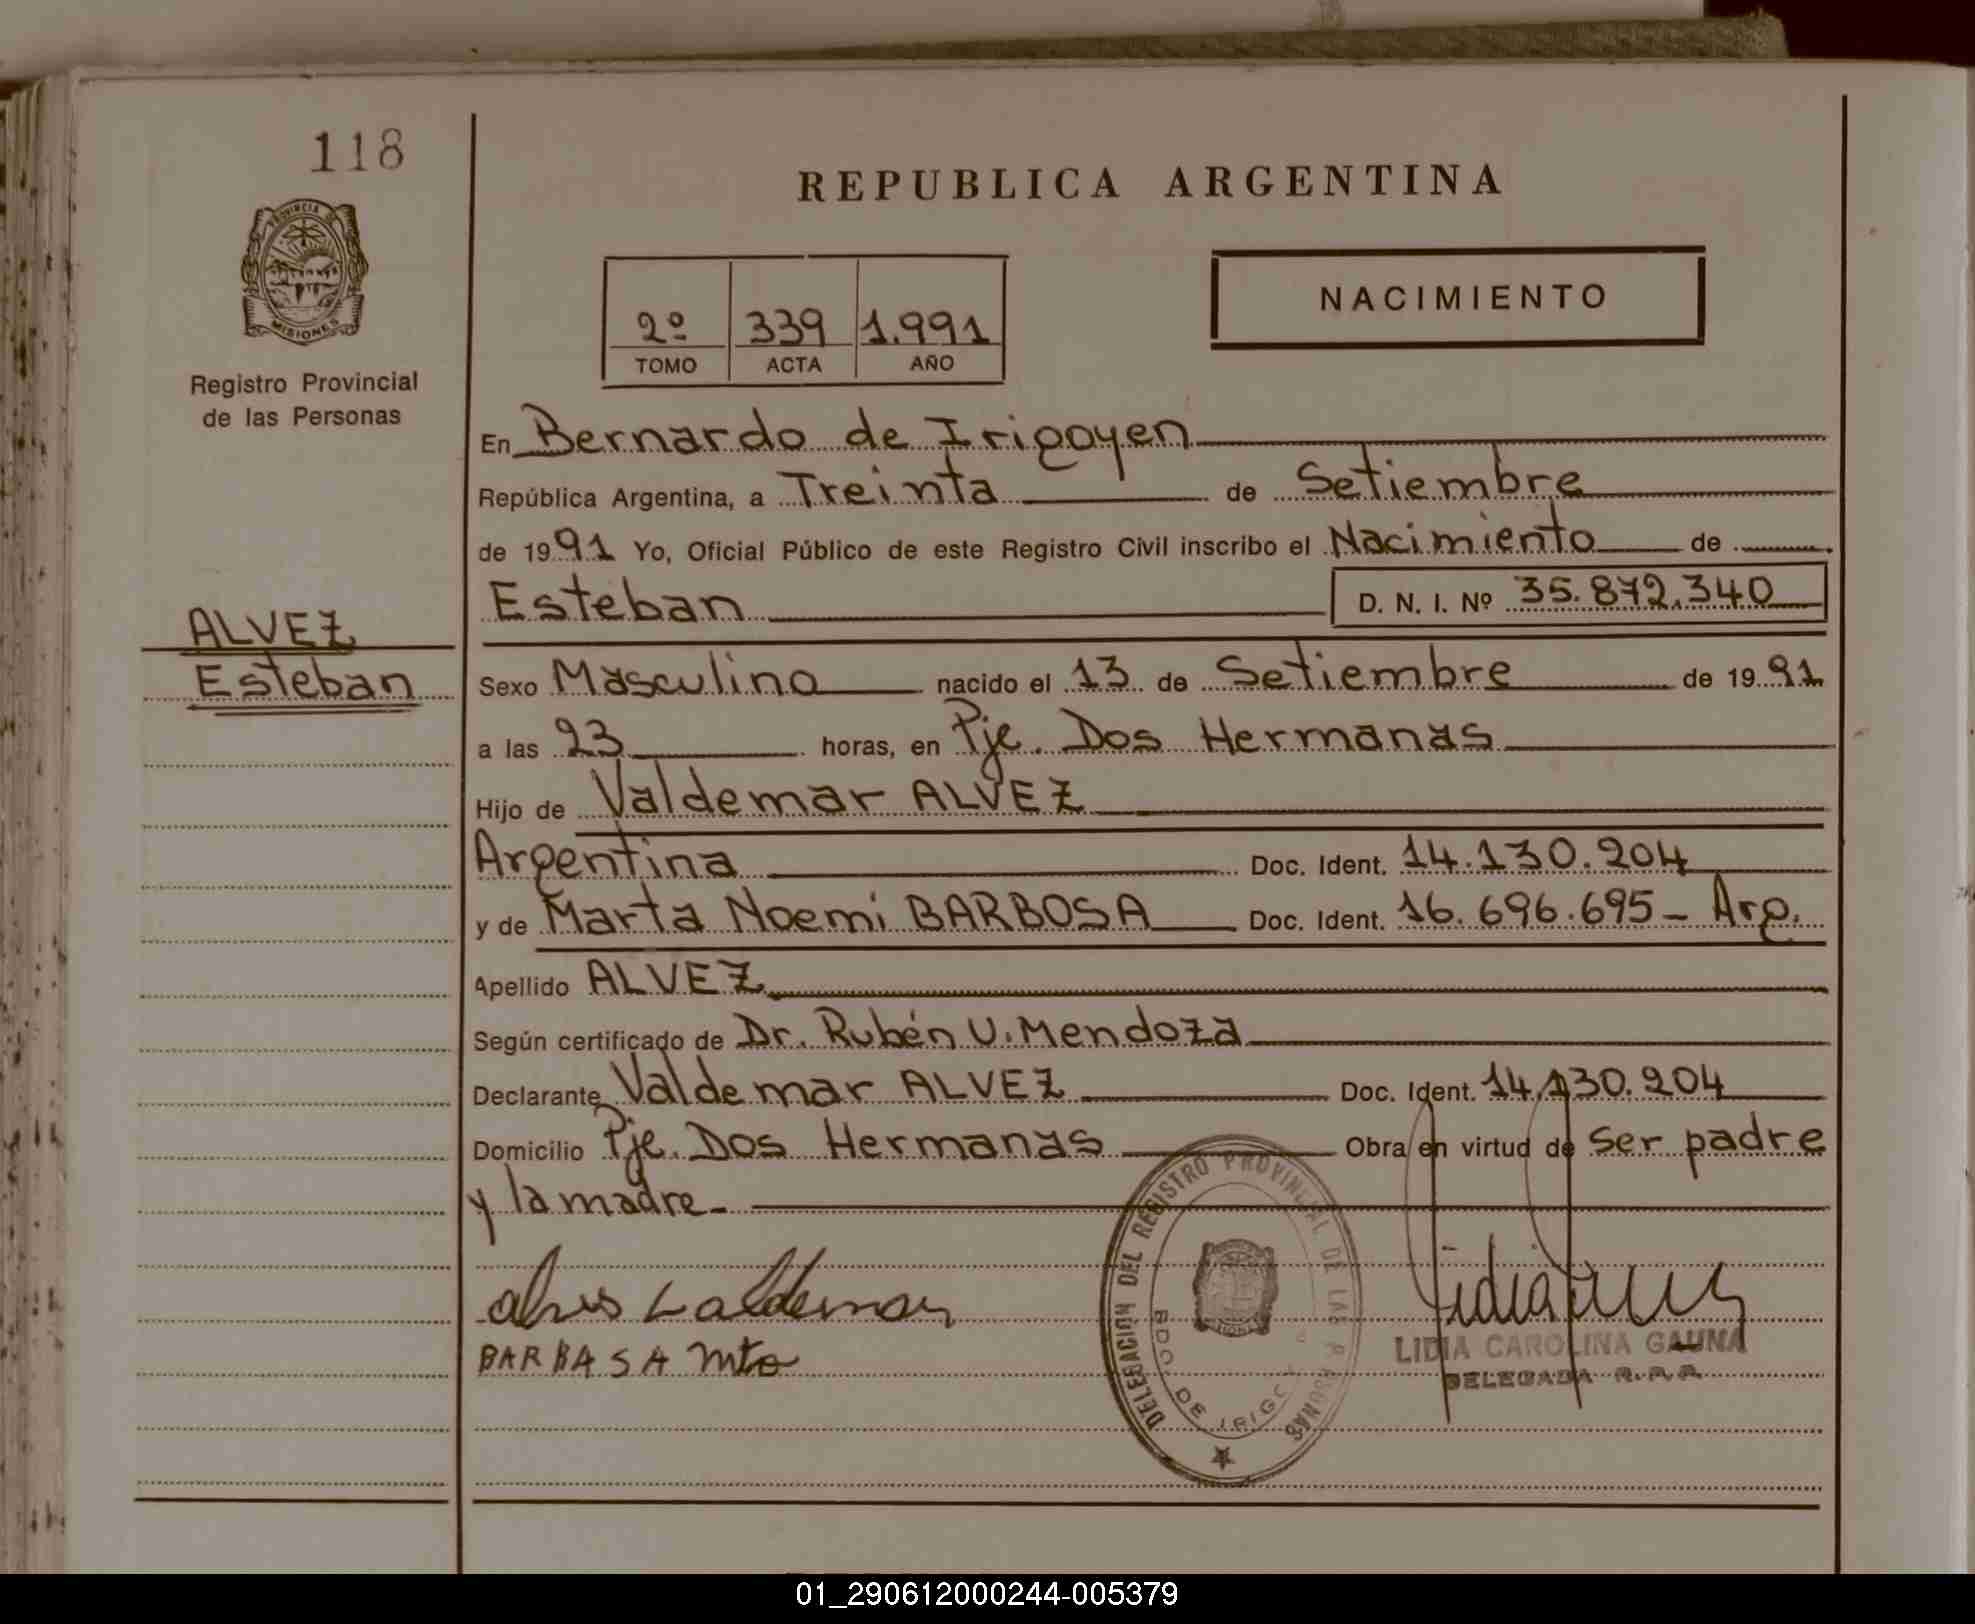 118
PROVINCIA DE
MISIONES
Registro Provincial
de las Personas
ALVEZ
Esteban
REPUBLICA ARGENTINA
2º 339 1.991
TOMO ACTA AÑO
NACIMIENTO
En Bernardo de Irigoyen
República Argentina, a Treinta de Setiembre
de 1991 Yo, Oficial Público de este Registro Civil inscribo el Nacimiento de
Esteban D. N. I. Nº 35.872.340
Sexo Masculino nacido el 13 de Setiembre de 1991
a las 23 horas, en Pje. Dos Hermanas
Hijo de Valdemar ALVEZ
Argentina Doc. Ident. 14.130.204
y de Marta Noemi BARBOSA Doc. Ident. 16.696.695 - Arg.
Apellido ALVEZ
Según certificado de Dr. Rubén U. Mendoza
Declarante Valdemar ALVEZ Doc. Ident. 14.130.204
Domicilio Pje. Dos Hermanas Obra en virtud de ser padre
y la madre.-
DELEGACIÓN DEL REGISTRO PROVINCIAL DE LAS PERSONAS
BDO. DE IRIGOY
BARBASA
LIDIA CAROLINA GAUNA
DELEGADA R.P.P.
01_290612000244-005379